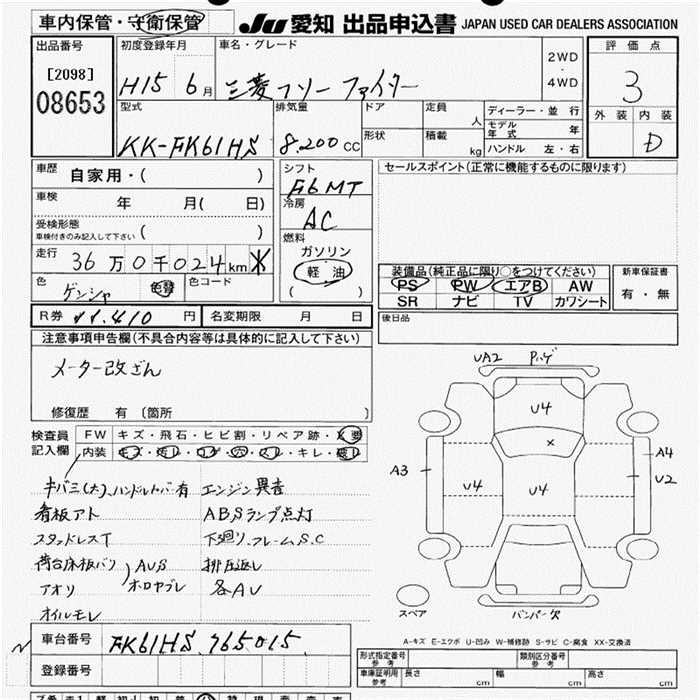 車内保管・守衛保管
JU 愛知 出品申込書 JAPAN USED CAR DEALERS ASSOCIATION
出品番号
[2098]
08653
初度登録年月
H15 6月
車名・グレード
三菱 フソー ファイター
2WD
・
4WD
評価点
3
外装 内装
D
型式
KK-FK61HS
排気量
8.200 CC
ドア
形状
定員
人
積載
kg
ディーラー・並行
モデル年式 年
ハンドル 左・右
車歴 自家用・( )
車検 年 月( 日)
受検形態
車検付きのみ記入して下さい ( )
走行 36万0千024km
色 ゲンシャ 色替 色コード
シフト
F6MT
冷房
AC
燃料
ガソリン
軽油
( )
セールスポイント(正常に機能するものに限ります)
装備品(純正品に限り○をつけてください)
PS PW エアB AW
SR ナビ TV カワシート
新車保証書
有・無
後日品
R券 11.410 円 名変期限 月 日
注意事項申告欄(不具合内容等は具体的に記入して下さい)
メーター改ざん
修復歴 有 [箇所 ]
検査員
記入欄
FW キズ・飛石・ヒビ割・リペア跡・X要
内装 キズ・汚レ・コゲ・穴・スレ・キレ・破レ
キバミ(大)、ハンドルカバー有
看板アト
スタッドレスT
荷台床板バリ
アオリ
AUS
ホロヤブレ
オイルモレ
エンジン異音
ABSランプ点灯
下廻り、フレームS.C
排圧返し
各AU
UA2 ハゲ
U4
×
A3
U4
U4
U4
A4
U2
スペア
バンパー欠
A-キズ E-エクボ U-凹み W-補修跡 S-サビ C-腐食 XX-交換済
車台番号 FK61HS.765015
登録番号
形式指定番号
参考
類別区分番号
参考
車庫証明用
参考
長さ cm 幅 cm 高さ cm